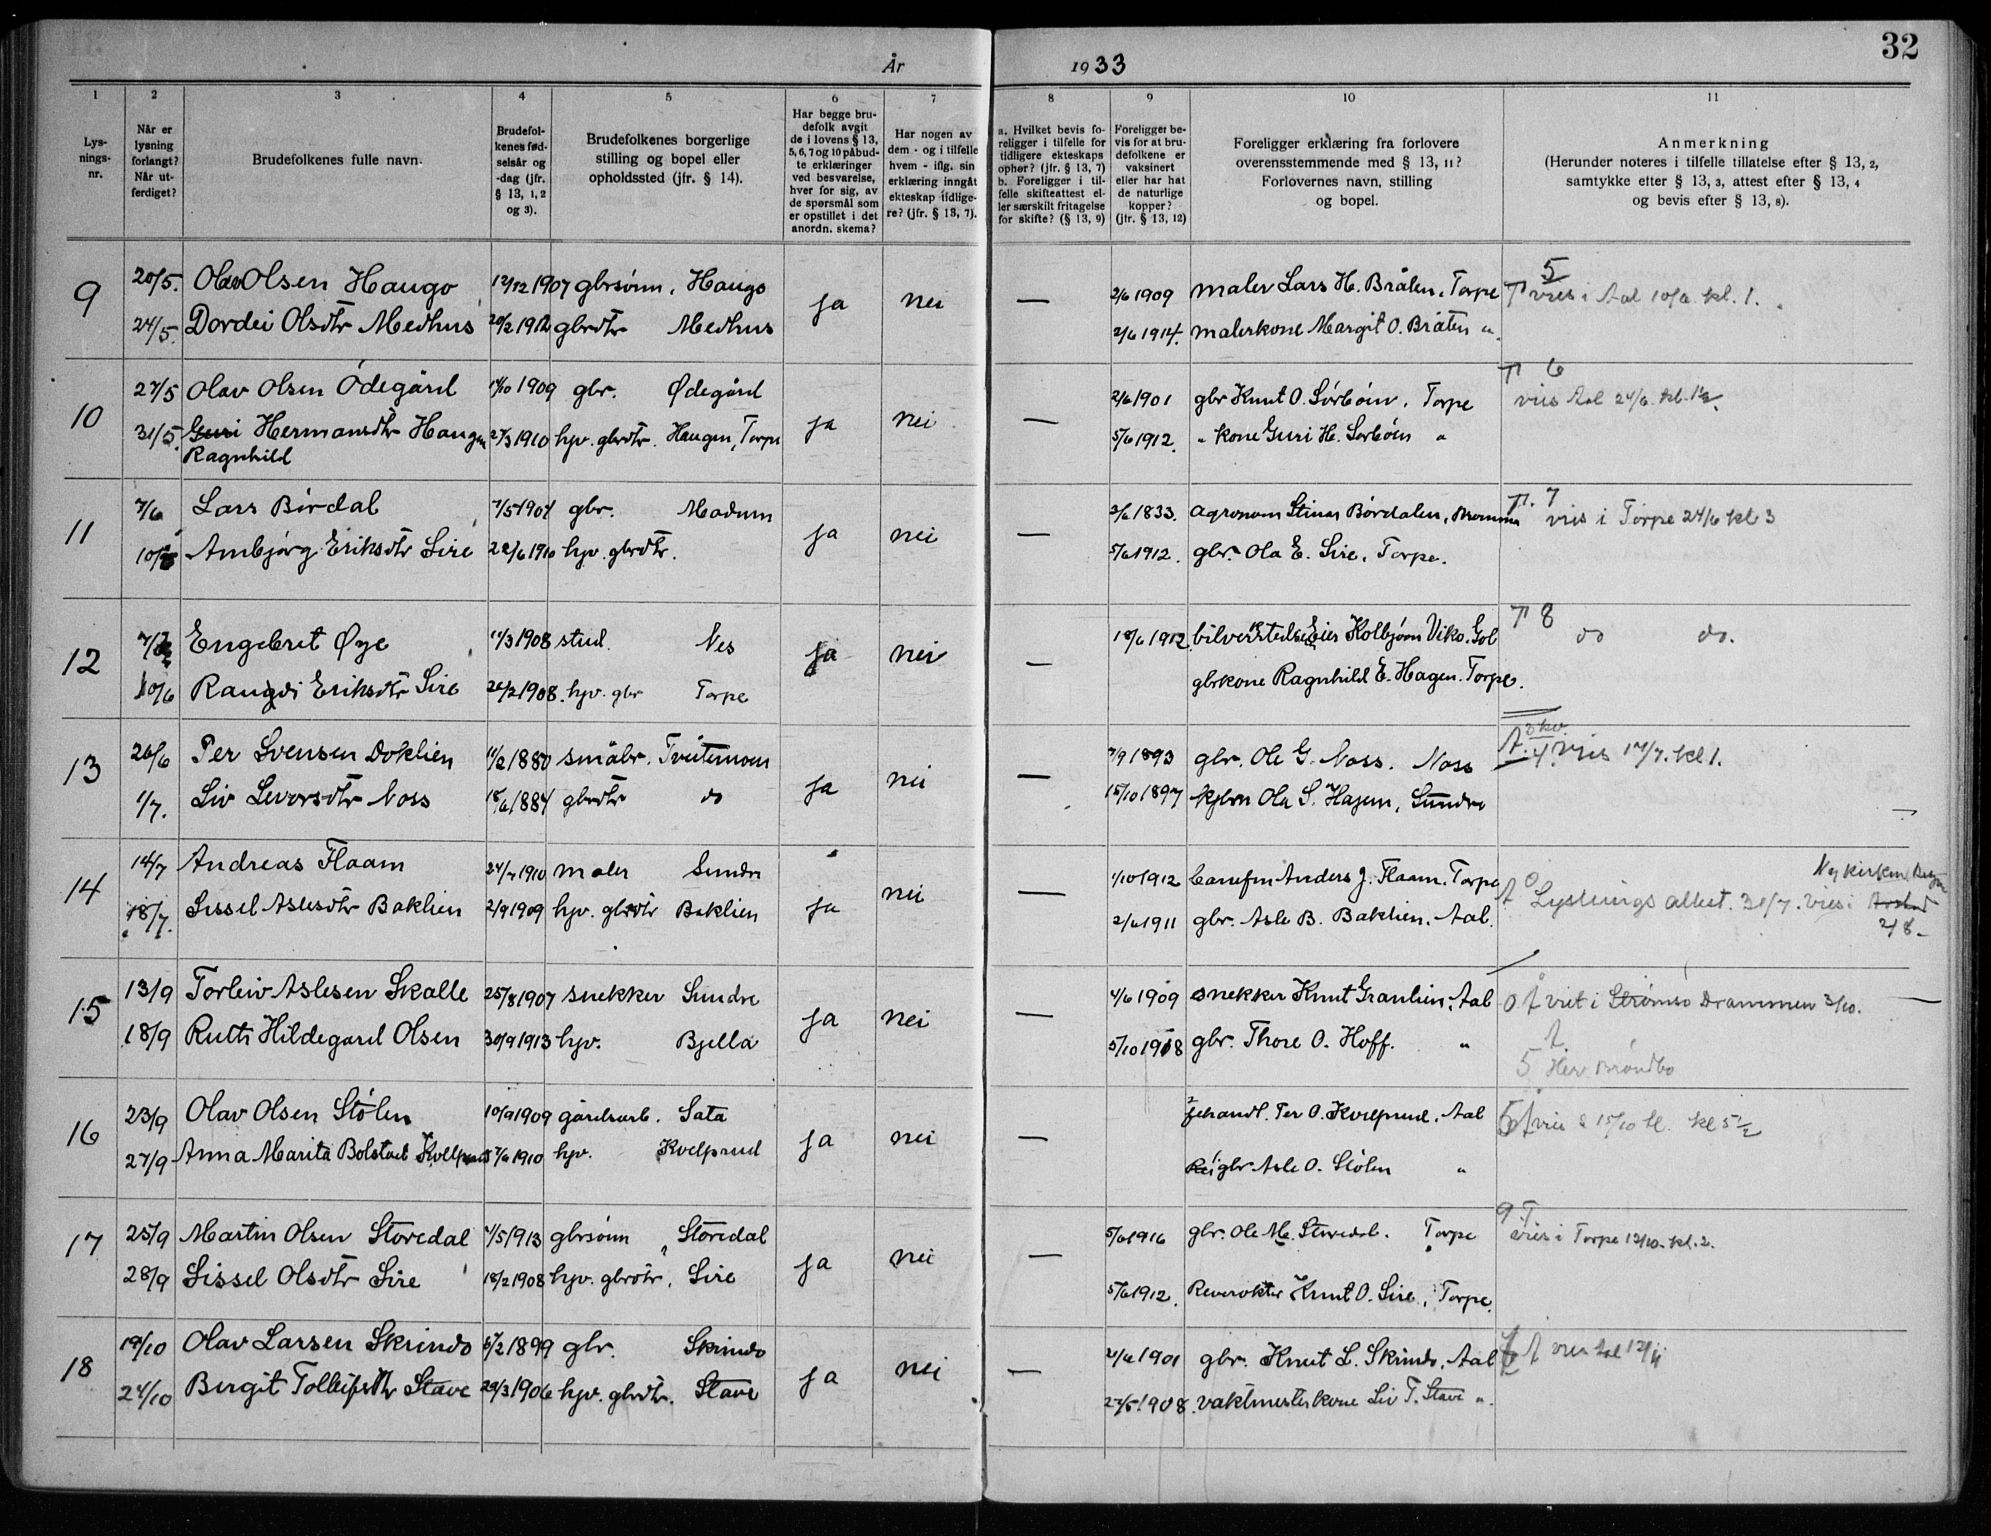 32
År 1933
1 2 3 4 5 6 7 8 9 10 11
Lys-
nings-
nr.
Når er
lysning
forlangt?
Når ut-
ferdiget?
Brudefolkenes fulle navn.
Brudefol-
kenes fød-
selsår og
-dag (jfr.
§ 13, 1, 2
og 3).
Brudefolkenes borgerlige
stilling og bopel eller
opholdssted (jfr. § 14).
Har begge bru-
defolk avgit
de i lovens § 13,
5, 6, 7 og 10 påbud-
te erklæringer
ved besvarelse,
hver for sig, av
de spørsmål som
er opstillet i det
anordn. skema?
Har nogen av
dem - og i tilfelle
hvem - iflg. sin
erklæring inngått
ekteskap tidlige-
re? (jfr. § 13, 7).
a. Hvilket bevis fo-
religger i tilfelle for
tidligere ekteskaps
ophør? (jfr. § 13, 7)
b. Foreligger i til-
felle skifteattest el-
ler særskilt fritagelse
for skifte? (§ 13, 9)
Foreligger be-
vis for at bru-
defolkene er
vaksinert
eller har hat
de naturlige
kopper?
(jfr. § 13, 12)
Foreligger erklæring fra forlovere
overensstemmende med § 13, 11?
Forlovernes navn, stilling
og bopel.
Anmerkning
(Herunder noteres i tilfelle tillatelse efter § 13, 2,
samtykke efter § 13, 3, attest efter § 13, 4
og bevis efter § 13, 8).
9 20/5. Olav Olsen Haugo 12/12 1907 gbrsønn, Haugo ja nei — 2/6 1909 maler Lars H. Bråten, Torpe 5 T vies i Aal 10/6 kl. 1.
24/5. Dordei Olsdtr Medhus 20/2 1912 gbrdtr Medhus 2/6 1914. malerkone Margit O. Bråten "
10 27/5 Olav Olsen Ödegård 14/10 1909 gbr. Ødegård ja nei — 2/6 1901 gbr Knut O. Sörböin, Torpe T 6 vies Aal 24/6. kl. 1½.
31/5. Guri Hermansdtr Haugen 27/3 1910 hjv. gbrdtr. Haugen, Torpe 5/6 1912. " kone Guri H. Sörböin "
Ragnhild
11 7/6 Lars Bördal 7/5 1904 gbr. Modum ja nei — 2/6 1833. agronom Steinar Bördalen, Bromma T. 7 vies i Torpe 24/6 kl 3
10/6 Ambjørg Eriksdtr Sire 22/6 1910 hjv. gbrdtr. 5/6 1912. gbr. Ola E. Sire, Torpe.
12 Engebret Øye 11/3 1908 stud. Nes ja nei — 18/6 1912 bilverksted eier Kolbjørn Viko. Gol T 8 do do.
10/6 Rangdi Eriksdtr Sire 26/2 1908. hjv. gbr Torpe gbrkone Ragnhild E. Hagen. Torpe.
13 26/6 Per Svensen Doklien 11/2 1880 småbr. Tveitemoen ja nei — 7/9 1893 gbr. Ole G. Noss. Noss A. 4 vies 17/7. kl 1.
1/7. Liv Levorsdtr Noss 18/6 1884 gbrdtr do 15/10 1897 Ola S. Hagen, Sundre
14 14/7 Andreas Flaam 24/7 1910 maler Sundre ja nei — 1/10 1912 Anders J. Flaam. Torpe A 0 Lysnings attest. 31/7. vies i Nykirken, Bergen
18/7. Sissel Aslesdtr Baklien 2/9 1909 hjv. gbrdtr Baklien 2/6 1911 gbr. Asle B. Baklien. Aal. 2/8 -
15 13/9 Torleiv Aslesen Skalle 25/8 1907 snekker Sundre ja nei — 4/6 1909 snekker Knut Granlien, Aal 0 A viet i Strömsö Drammen 3/10.
18/9 Ruth Hildegard Olsen 30/9 1913 hjv. Bjella 5/10 1918 gbr. Thore O. Hoff. " A.
5 Herv Bröndbo
16 23/9 Olav Olsen Stölen 10/9 1909 gårdsarb. Sata ja nei — Per O. Kvelprud, Aal 5 A vies 15/10 kl 5½
27/9 Anna Marita Bolstad Kvelprud 5/6 1910 hjv. Kvelprud gbr. Asle O. Stölen "
17 25/9 Martin Olsen Storedal 4/5 1913 gbrsønn Storedal ja nei — 5/6 1916 gbr. Ole M. Storedal. Torpe 9 T vies i Torpe 12/10. kl. 2.
28/9 Sissel Olsdtr Sire 18/2 1908 hjv. gbrdtr, Sire 5/6 1912. Reverøkter Knut O. Sire, Torpe.
18 19/10 Olav Larsen Skrindo 5/2 1899 gbr. Skrindo ja nei — 2/6 1901 gbr. Knut L. Skrindo, Aal 6 A vies Aal 12/11
24/10 Birgit Tolleifsdtr Stave 29/3 1906 hjv. gbrdtr. Stave 27/5 1908. vaktmesterkone Liv T. Stave ".